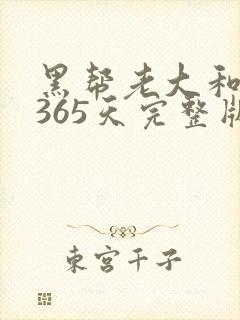 黑帮老大和
365天完整版
東宫千子